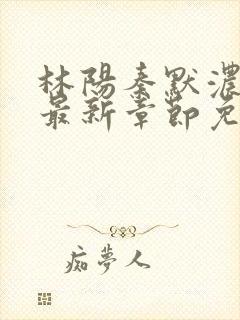 林陽秦默濃
最新章節免
痴夢人